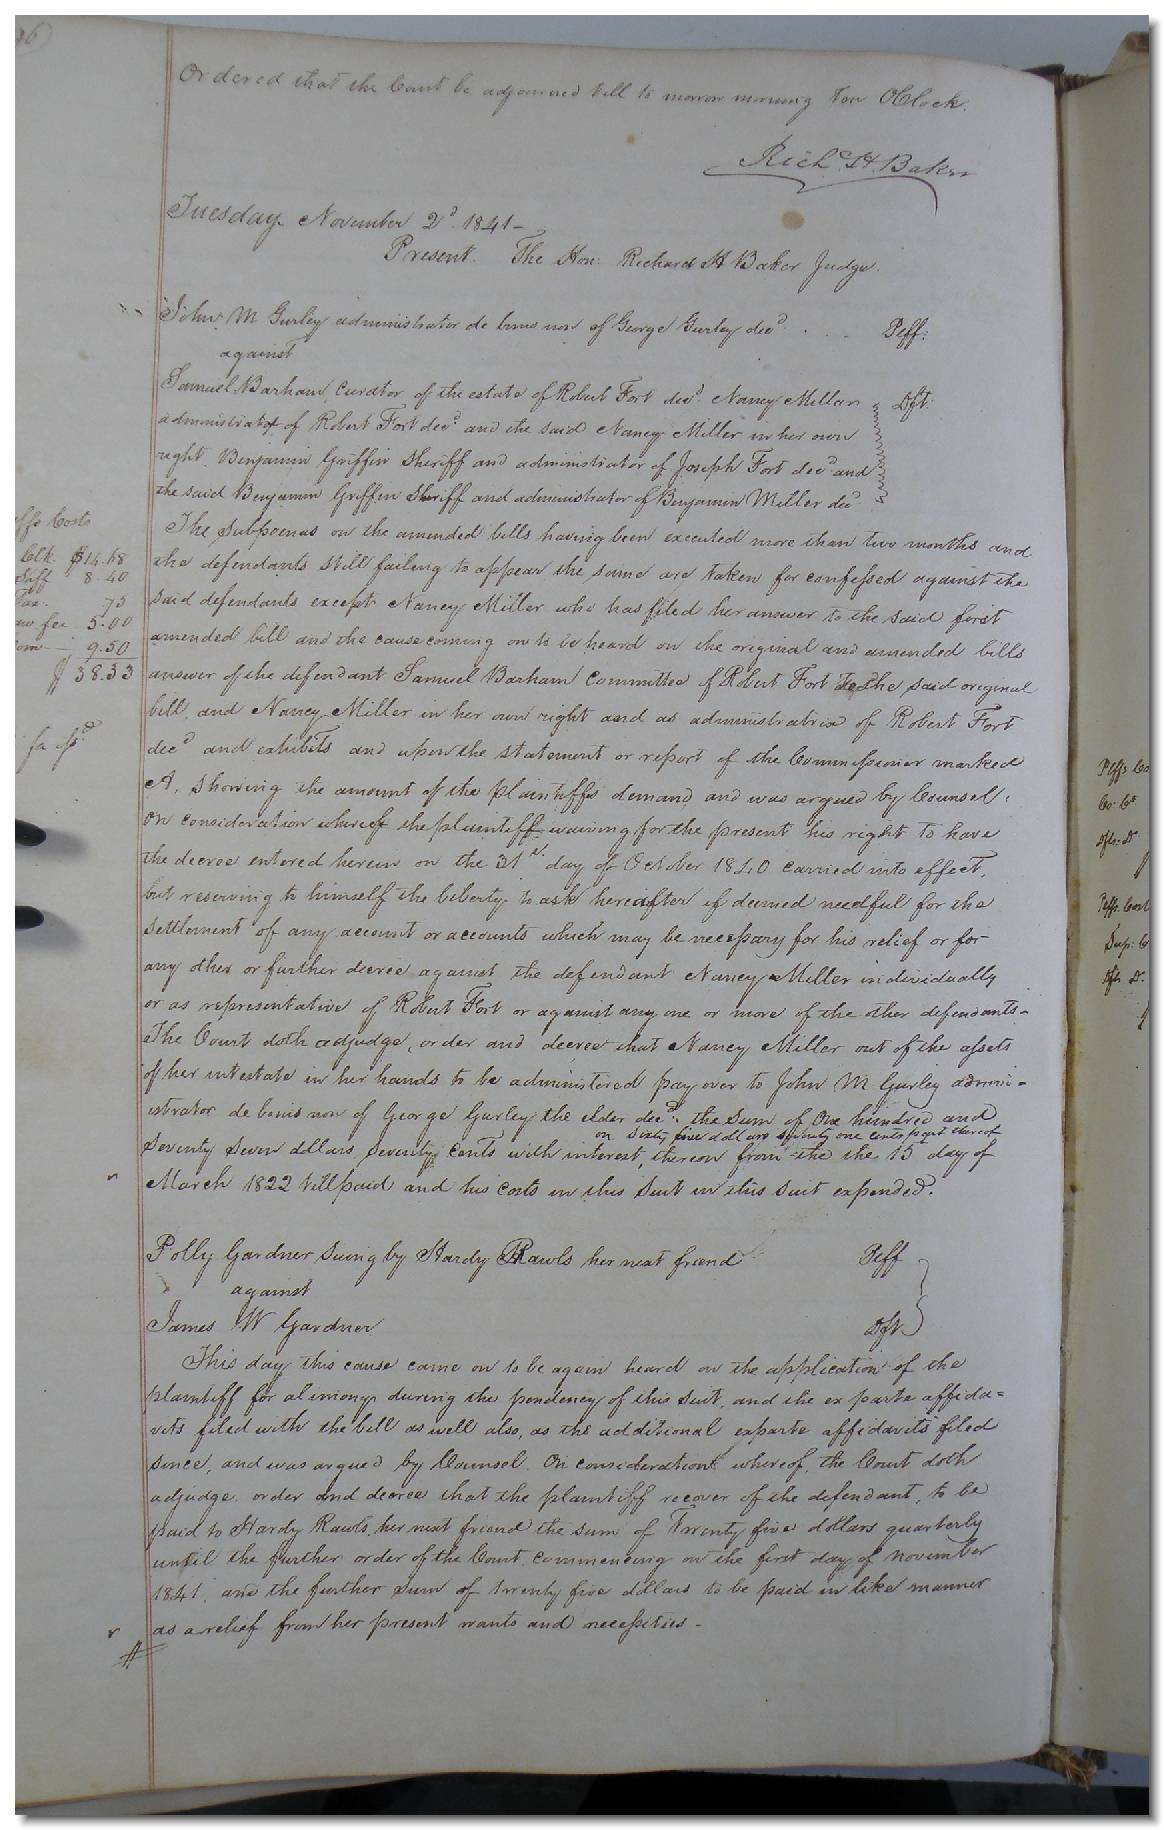 36)
Ordered that the Court be adjourned till to morrow morning Ten OClock.
Richd. H. Baker
Tuesday November 2d. 1841 –
Present. The Hon: Richard H Baker Judge.
John M Gurley administrator de bonis non of George Gurley decd. . . . . Plff:
against
Samuel Barham, Curator of the estate of Robert Fort decd. Nancy Miller Dft:
administratrx of Robert Fort decd. and the said Nancy Miller in her own
right. Benjamin Griffin Sheriff and administrator of Joseph Fort decd and
the said Benjamin Griffin Sheriff and administrator of Benjamin Miller decd.
The Subpoenas on the amended bills having been executed more than two months and
the defendants still faileng to appear the same are taken for confessed against the
said defendants except Nancy Miller who has filed her answer to the said first
amended bill and the cause coming on to be heard on the original and amended bills
answer of the defendant Samuel Barham Committee of Robert Fort to the said original
bill, and Nancy Miller in her own right and as administratrix of Robert Fort
decd and exhibits and upon the statement or report of the Commissioner marked
A, showing the amount of the plaintiffs demand and was argued by Counsel.
On consideration whereof the plaintiff waiving for the present his right to have
the decree entered herein on the 31st. day of October 1840 carried into effect,
but reserving to himself the liberty to ask hereafter if deemed needful for the
settlement of any account or accounts which may be necessary for his relief or for
any other or further decree against the defendant Nancy Miller individually
or as representative of Robert Fort or against any one or more of the other defendants –
The Court doth adjudge, order and decree that Nancy Miller out of the assets
of her intestate in her hands to be administered pay over to John M Gurley admin-
istrator de bonis non of George Gurley the elder decd. the sum of One hundred and
on sixty five dollars seventy one cents part thereof
Seventy Seven dollars seventy Cents with interest, thereon from the the 15 day of
March 1822 till paid and his costs in this suit in this suit expended.
ffs Costs
Clk. $14.68
Shff 8.40
Tax. 75
aw fee 5.00
Com — 9.50
$38.33
fa issd.
Polly Gardner suing by Hardy Rawls her next friend Plff
against
James W Gardner Dft
This day this cause came on to be again heard on the application of the
plaintiff for alimony during the pendency of this Suit, and the ex parte affida=
vits filed with the bill as well also, as the additional exparte affidavits filed
since, and was argued by Counsel. On consideration whereof, the Court doth
adjudge order and decree that the plaintiff recover of the defendant, to be
paid to Hardy Rawls, her next friend the sum of Twenty five dollars quarterly
until the further order of the Court commencing on the first day of november
1841, and the further sum of twenty five dollars to be paid in like manner
as a relief from her present wants and necessities –
Plffs Co
Co: Ct
Dfts: Dr
Plffs Cost
Sup: C
Dfts Dr.